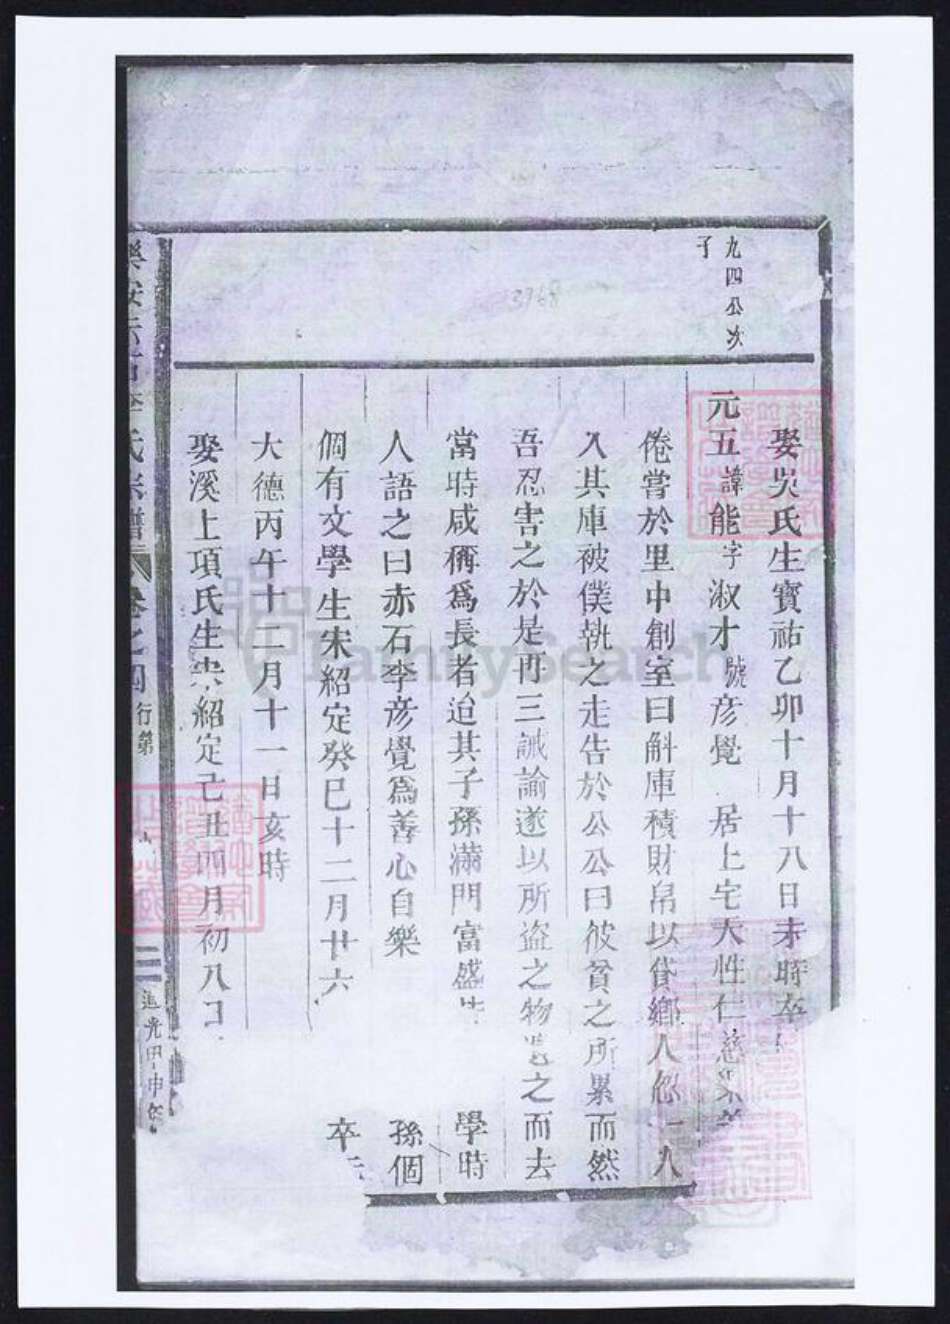 九四公次
子
娶吳氏生寶祐乙卯十月十八日未時卒
元五諱能字淑才號彥覺 居上宅天性仁慈
倦嘗於里中創室曰斛庫積財帛以貸鄉人忽一人
入其庫被僕執之走告於公公曰彼貧之所累而然
吾忍害之於是再三誡諭遂以所盜之物 之而去
當時咸稱為長者迨其子孫滿門富盛 學時
人語之曰赤石李彥覺為善心自樂 孫個
個有文學生宋紹定癸巳十二月廿六 卒
大德丙午十二月十一日亥時
娶溪上項氏生宋紹定己丑四月初八日
氏宗譜 卷之四 行第
道光甲申年
13768
FamilySearch